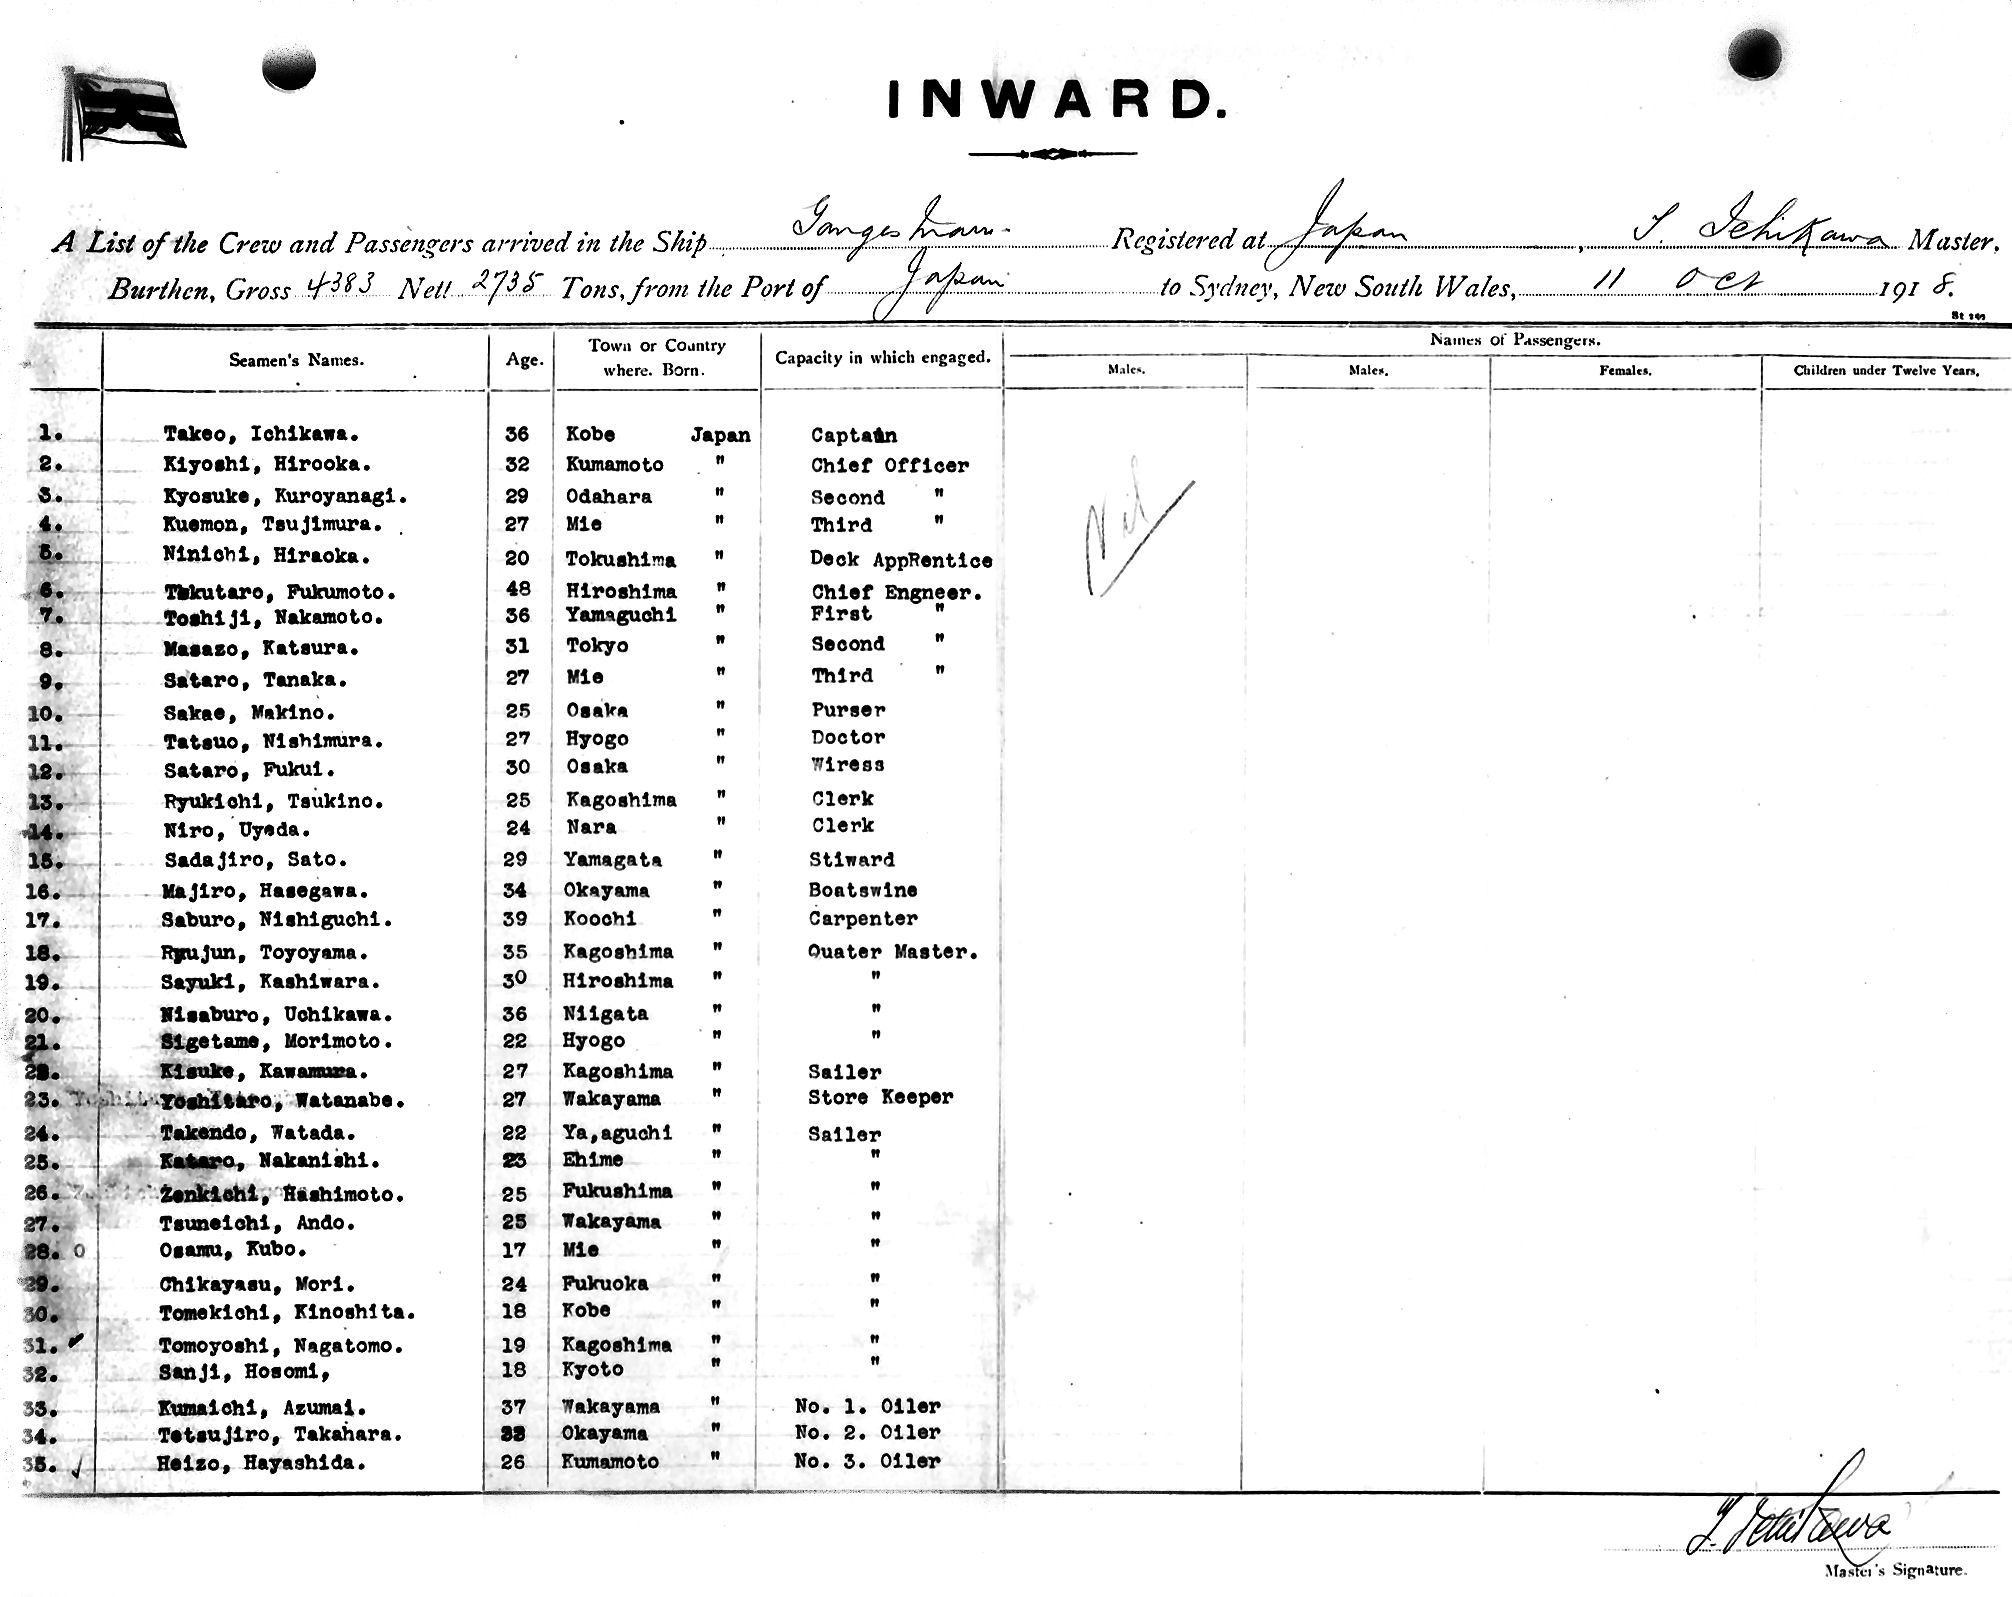 INWARD.
A List of the Crew and Passengers arrived in the Ship Ganges Maru. Registered at Japan, T. Ichikawa Master,
Burthen, Gross 4383 Nett 2735 Tons, from the Port of Japan to Sydney, New South Wales, 11 Oct 1918.
Names of Passengers.
Seamen's Names. Age. Town or Country where. Born. Capacity in which engaged. Males. Males. Females. Children under Twelve Years.
1. Takeo, Ichikawa. 36 Kobe Japan Captain
2. Kiyoshi, Hirooka. 32 Kumamoto " Chief Officer
3. Kyosuke, Kuroyanagi. 29 Odahara " Second "
4. Kuemon, Tsujimura. 27 Mie " Third "
Nil
5. Ninichi, Hiraoka. 20 Tokushima " Deck AppRentice
6. Tokutaro, Fukumoto. 48 Hiroshima " Chief Engneer.
7. Toshiji, Nakamoto. 36 Yamaguchi " First "
8. Masazo, Katsura. 31 Tokyo " Second "
9. Sataro, Tanaka. 27 Mie " Third "
10. Sakae, Makino. 25 Osaka " Purser
11. Tatsuo, Nishimura. 27 Hyogo " Doctor
12. Sataro, Fukui. 30 Osaka " Wiress
13. Ryukichi, Tsukino. 25 Kagoshima " Clerk
14. Niro, Uyeda. 24 Nara " Clerk
15. Sadajiro, Sato. 29 Yamagata " Stiward
16. Majiro, Hasegawa. 34 Okayama " Boatswine
17. Saburo, Nishiguchi. 39 Koochi " Carpenter
18. Ryujun, Toyoyama. 35 Kagoshima " Quater Master.
19. Sayuki, Kashiwara. 30 Hiroshima " "
20. Nisaburo, Uchikawa. 36 Niigata " "
21. Sigetame, Morimoto. 22 Hyogo " "
22. Kisuke, Kawamura. 27 Kagoshima " Sailer
23. Yoshitaro, Watanabe. 27 Wakayama " Store Keeper
24. Takendo, Watada. 22 Ya,aguchi " Sailer
25. Kataro, Nakanishi. 23 Ehime " "
26. Zenkichi, Hashimoto. 25 Fukushima " "
27. Tsuneichi, Ando. 25 Wakayama " "
28. O Osamu, Kubo. 17 Mie " "
29. Chikayasu, Mori. 24 Fukuoka " "
30. Tomekichi, Kinoshita. 18 Kobe " "
31. Tomoyoshi, Nagatomo. 19 Kagoshima " "
32. Sanji, Hosomi, 18 Kyoto " "
33. Kumaichi, Azumai. 37 Wakayama " No. 1. Oiler
34. Tetsujiro, Takahara. 33 Okayama " No. 2. Oiler
35. Heizo, Hayashida. 26 Kumamoto " No. 3. Oiler
T. Ichikawa
Master's Signature.